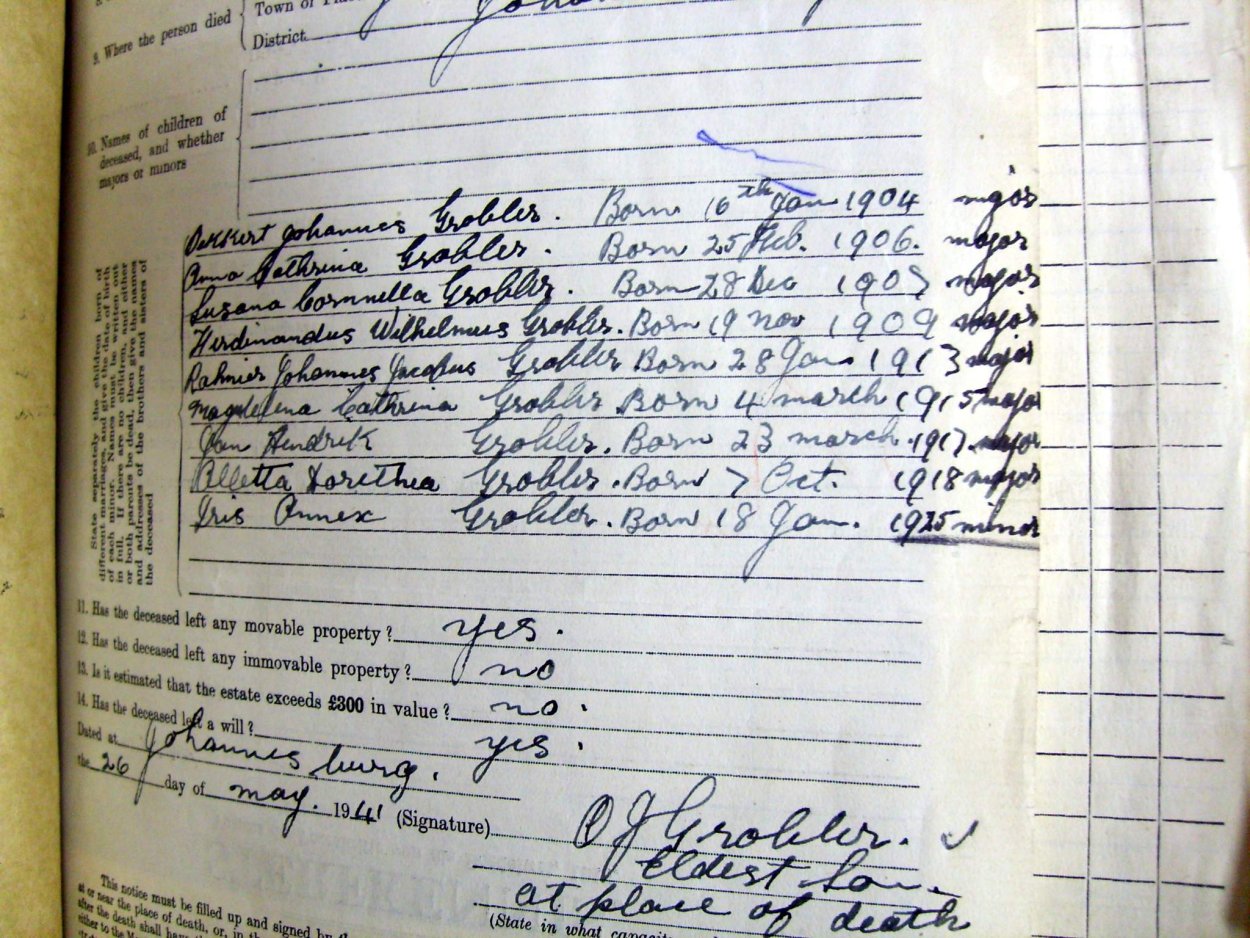 9. Where the person died
Town or
District
10. Names of children of
deceased, and whether
majors or minors
State separately the children born of
different marriages, and give the date of birth
of each minor. Names must be written out
in full. If there are no children, and either
or both parents be dead, then give the names
and addresses of the brothers and sisters of
the deceased
Johannes Grobler. Born 16th Jan 1904 major
Anna Cathrina Grobler. Born 25 Feb. 1906. major
Susana Cornnella Grobler. Born 28 Dec 1907 major
Ferdinandus Wilhelmus Grobler. Born 19 Nov 1909 major
Johannes Jacobus Grobler Born 28 Jan 1913 major
Magdelena Cathrina Grobler. Born 4 march 1915 major
Jan Hendrik Grobler. Born 23 march 1917 major
Alletta Dorethea Grobler. Born 7 Oct. 1918 major
Iris Annex Grobler. Born 18 Jan. 1925 minor
11. Has the deceased left any movable property? yes.
12. Has the deceased left any immovable property? no
13. Is it estimated that the estate exceeds £300 in value? no.
14. Has the deceased left a will? yes.
Dated at Johannesburg.
the 26 day of may. 1941 (Signature) O J Grobler.
Eldest Son.
at place of death
(State in what
This notice must be filled up and signed by
at or near the place of death, or, in
after the death shall have
either to the